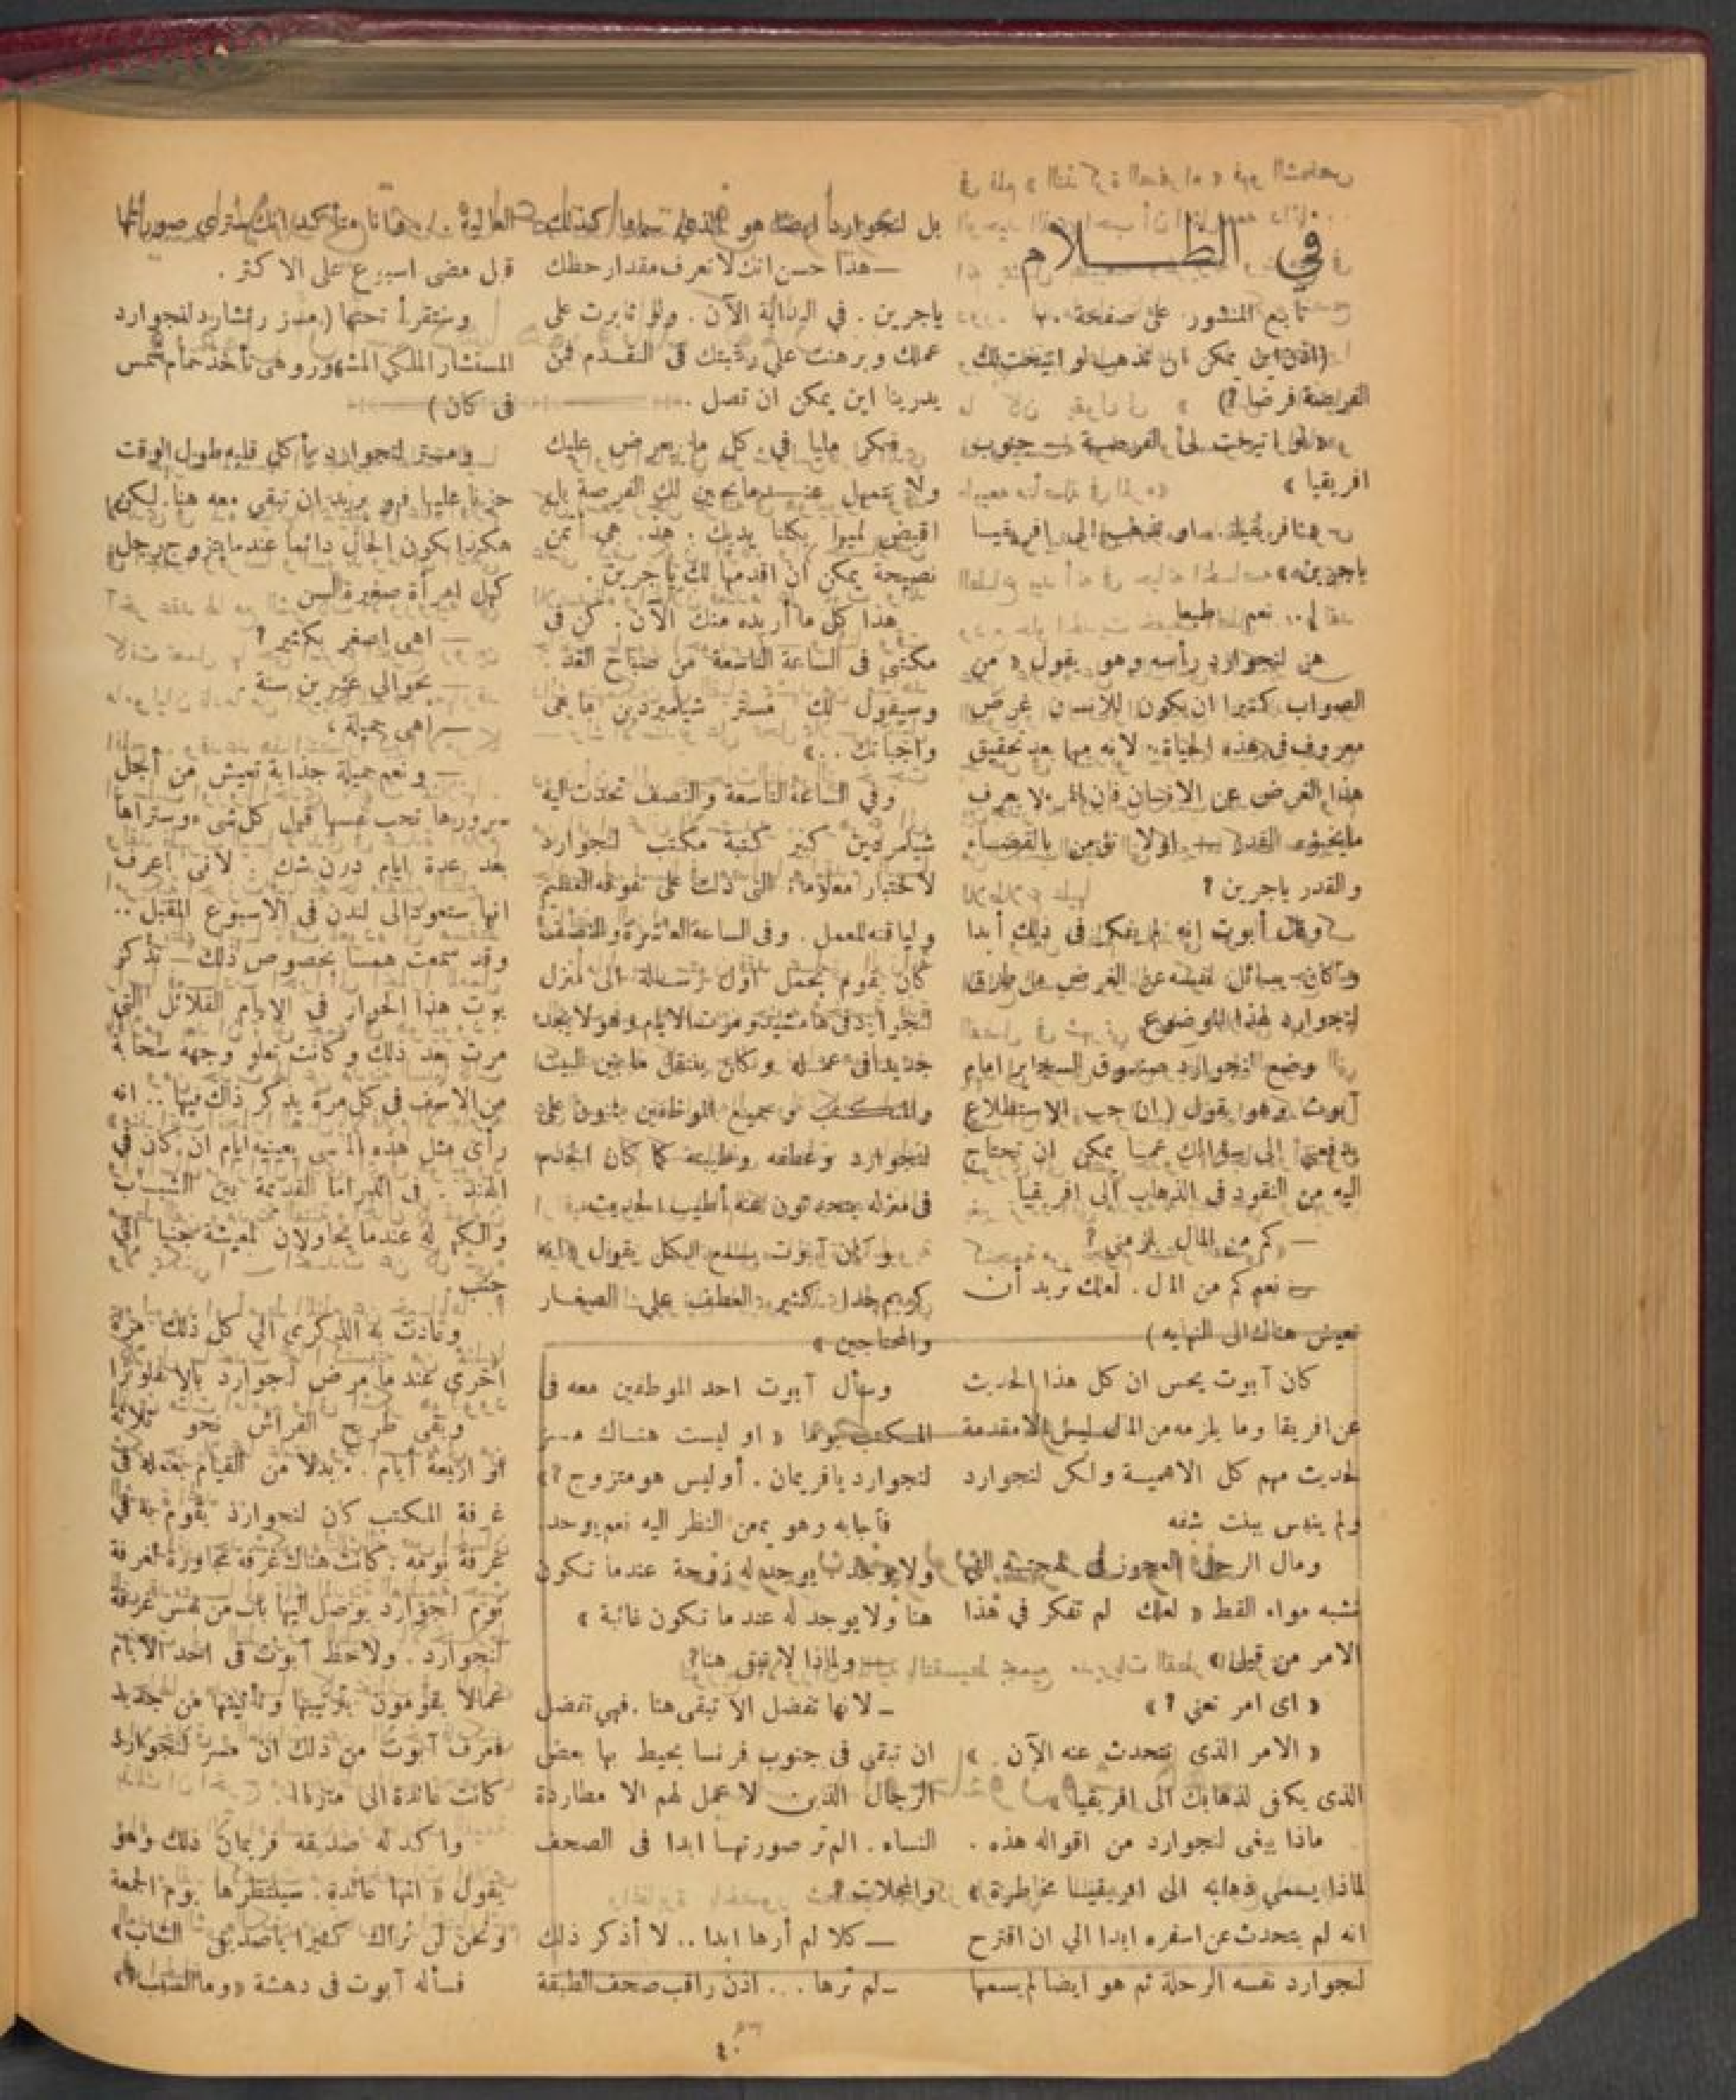 في الظلام
تابع المنشور على صفحة ٢٠
(اذن اين يمكن ان تذهب لو اتيحت لك
الفرصة فرضا؟)
« لو اتيحت لى الفرصة — جنوب
افريقيا »
الى افريقيا
ياجرين »
نعم طبعا
هز لنجوارد رأسه وهو يقول « من
الصواب كثيرا ان يكون للانسان غرض
معروف فى هذه الحياة لانه مهما بعد تحقيق
هذا الغرض عن الانسان فان المرء لا يعرف
مايخبؤه القدر — اولا تؤمن بالقضاء
والقدر ياجرين ؟
وقال أبوت انه لم يفكر فى ذلك أبدا
وكان يسائل نفسه عن الغرض من طرق
لنجوارد لهذا الموضوع
وضع لنجوارد صندوق السجاير امام
آبوت وهو يقول ( ان حب الاستطلاع
يدفعنى إلى سؤالك عما يمكن ان تحتاج
اليه من النقود فى الذهاب الى افريقيا
— كم من المال يلزمني ؟
— نعم كم من المال . لعلك تريد أن
تعيش هناك الى النهايه )
كان آبوت يحس ان كل هذا الحديث
عن افريقا وما يلزمه من المال ليس الا مقدمة
لحديث مهم كل الاهمية ولكن لنجوارد
ولم ينبس ببنت شفه
ومال الرجل العجوز فى لهجته التى
تشبه مواء القط « لعلك لم تفكر في هذا
الامر من قبل »
« اى امر تعني ؟ »
« الامر الذى نتحدث عنه الآن . »
الذى يكفى لذهابك الى افريقيا »
ماذا يبغى لنجوارد من اقواله هذه .
لماذا يسمي ذهابه الى افريقيا مخاطرة »
انه لم يتحدث عن اسفره ابدا الي ان اقترح
لنجوارد نفسه الرحلة ثم هو ايضا لم يسمها
بل لنجوارد ايضا هو الذى سماها كذلك
— هذا حسن انك لا تعرف مقدار حظك
ياجرين . في البداية الآن . ولو ثابرت على
عملك وبرهنت علي رغبتك فى التقدم فمن
يدرينا اين يمكن ان تصل .
فكر مليا في كل ما يعرض عليك
ولا تتمهل عندما تحين لك الفرصة بل
اقبض عليها بكلتا يديك . هذه هي أثمن
نصيحة يمكن أن اقدمها لك ياجرين .
هذا كل ما أريده منك الآن . كن فى
مكتبي فى الساعة التاسعة من صباح الغد .
وسيقول لك مستر شيلمردين ما هى
واجباتك .. »
وفي الساعة التاسعة والنصف تحدث اليه
شيلمردين كبير كتبة مكتب لنجوارد
لاختبار معلوماته التى دلت على تفوقه العظيم
ولياقته للعمل . وفى الساعة العاشرة والنصف
كان يقوم بحمل أول رسالة الى منزل
لنجوارد فى هامستيد ومرت الايام وهو لا يجد
جديدا فى عمله وكان ينتقل ما بين البيت
والمكتب وجميع الموظفين يثنون على
لنجوارد وعطفه وطيبته كما كان الخدم
فى منزله يتحدثون عنه أطيب الحديث
وكان آبوت يسمع الكل يقول « انه
كريم جدا . كثير العطف على الصغار
والمحتاجين »
وسأل آبوت احد الموظفين معه فى
المكتب يوما « او ليست هناك مسز
لنجوارد يافريمان . أوليس هو متزوج ؟ »
فأجابه وهو يمعن النظر اليه نعم يوجد
ولا يوجد يوجد له زوجة عندما تكون
هنا ولا يوجد له عند ما تكون غائبة »
— ولماذا لا تبقى هنا ?
— لانها تفضل الا تبقى هنا . فهي تفضل
ان تبقى فى جنوب فرنسا يحيط بها بعض
الرجال الذين لا عمل لهم الا مطاردة
النساء . الم تر صورتها ابدا فى الصحف
والمجلات ؟
— كلا لم أرها ابدا .. لا أذكر ذلك
— لم ترها ... اذن راقب صحف الطبقة
العالية . وانا متأكد انك سترى صورتها
قبل مضى اسبوع على الاكثر .
وستقرأ تحتها ( مسز رتشارد لنجوارد
المستشار الملكي المشهور وهى تأخذ حمام شمس
فى كان )
ومستر لنجوارد يأكل قلبه طول الوقت
حزنا عليها فهو يريد ان تبقى معه هنا . لكن
هكذا يكون الحال دائما عندما يتزوج رجل
كهل امرأة صغيرة السن
— اهى اصغر بكثير ؟
— بحوالى عشرين سنة .
— اهى جميلة ،
— ونعم جميلة جذابة تعيش من أجل
سرورها تحب نفسها قبل كل شىء وستراها
بعد عدة ايام دون شك . لانى اعرف
انها ستعود الى لندن فى الاسبوع المقبل ..
وقد سمعت همسا بخصوص ذلك — تذكر
بوت هذا الحوار في الايام القلائل التى
مرت بعد ذلك وكانت تعلو وجهه سحابة
من الاسف في كل مرة يذكر ذلك فيها .. انه
رأى مثل هذه المآسى بعينيه ايام ان كان فى
الهند . فى الدراما القديمة بين الشباب
والكهولة عندما يحاولان المعيشة جنبا الى
جنب .
وعادت به الذكرى الي كل ذلك مرة
اخرى عند ما مرض لنجوارد بالانفلونزا
وبقى طريح الفراش نحو ثلاثة
او اربعة أيام . وبدلا من القيام بعمله فى
غرفة المكتب كان لنجوارد يقوم به فى
غرفة نومه . كانت هناك غرفة مجاورة لغرفة
نوم لنجوارد يوصل اليها باب من نفس غرفة
لنجوارد . ولاحظ آبوت فى احد الايام
عمالا يقومون بترتيبها وتأثيثها من جديد
فعرف آبوت من ذلك ان مسز لنجوارد
كانت عائدة الى منزلها .
واكد له صديقه فريمان ذلك وهو
يقول « انها عائدة . سينتظرها يوم الجمعة
ونحن لن نراك كثيرا ياصديقى الشاب »
فسأله آبوت فى دهشة « وما السبب »
٤٠